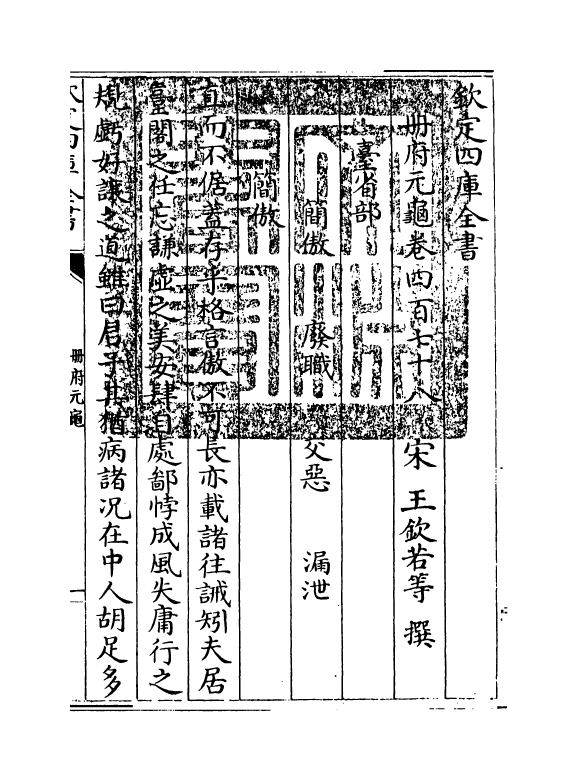 欽定四庫全書
冊府元龜卷四百七十八　宋　王欽若等　撰
臺省部
簡傲　廢職　交惡　漏泄
簡傲
直而不倨蓋存乎格言傲不可長亦載諸往誡矧夫居
臺閣之任忘謙虛之美安肆自處鄙悖成風失庸行之
規虧好謙之道雖曰君子其猶病諸況在中人胡足多
冊府元龜
一